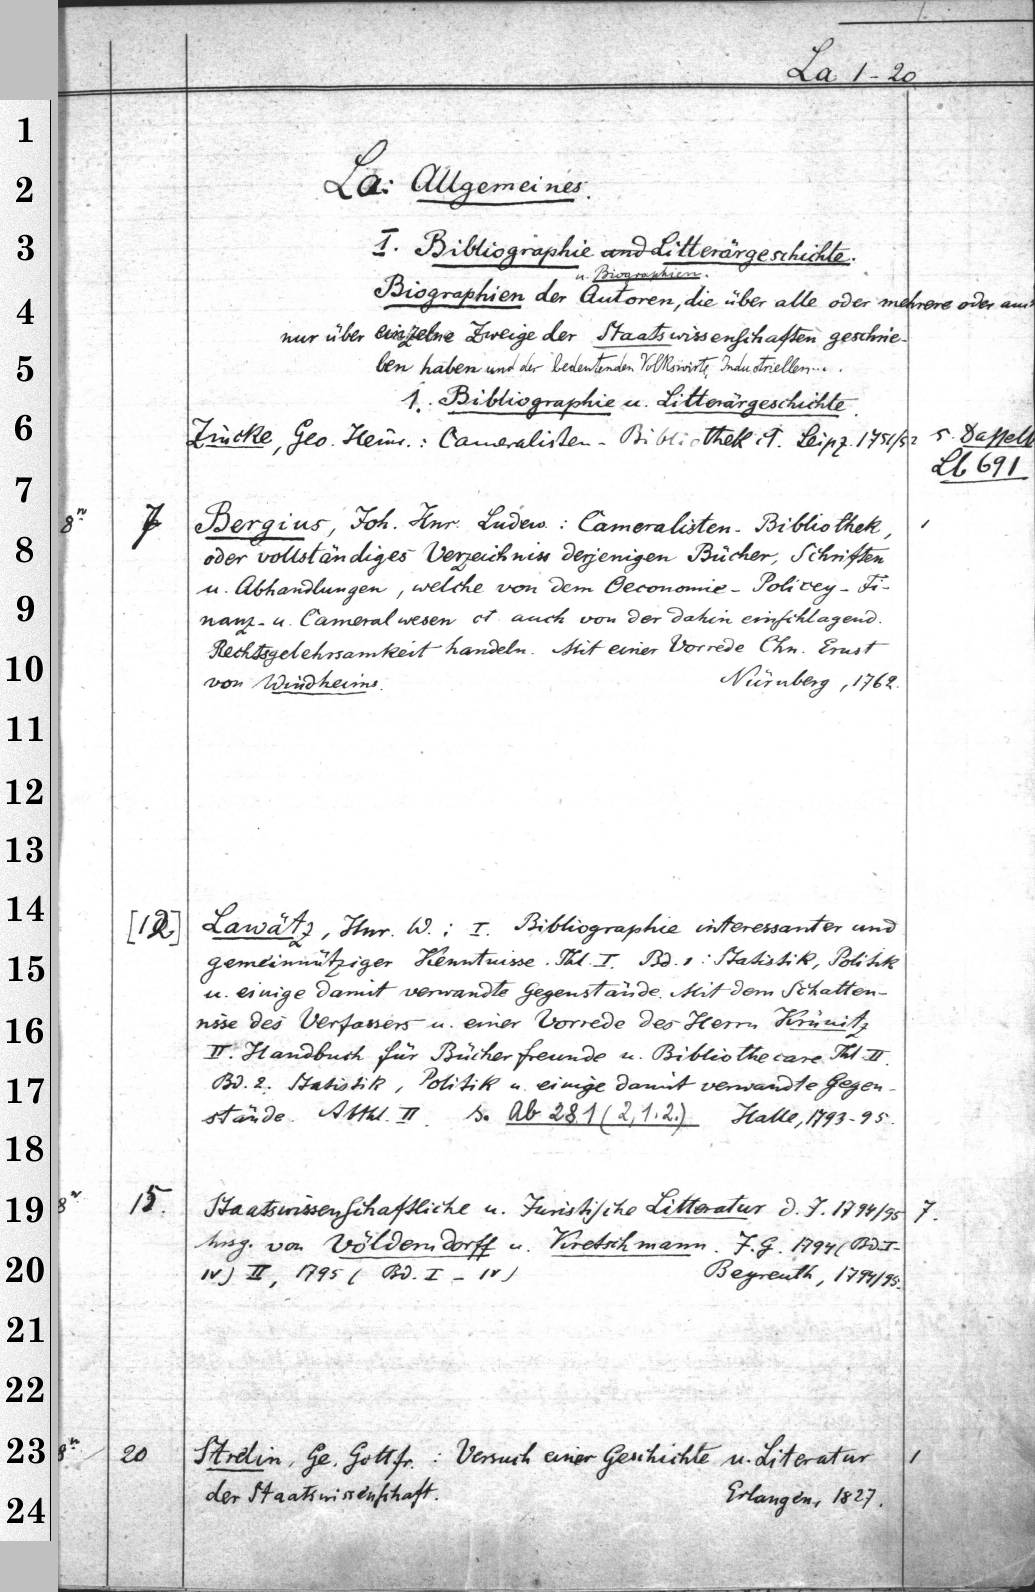 La 1-20
1
2
La: Allgemeines.
3
I. Bibliographie und Litterärgeschichte.
u. Biographien.
4
Biographien der Autoren, die über alle oder mehrere oder auch
nur über einzelne Zweige der Staatswissenschaften geschrie-
5
ben haben und der bedeutenden Volkswirte, Industriellen...
1. Bibliographie u. Litterärgeschichte.
6
Zincke, Geo. Heinr.: Cameralisten-Bibliothek ct. Leipz. 1751/52 s. Dasselb
Lb 691
7
8º 7 Bergius, Joh. Hnr. Ludew.: Cameralisten-Bibliothek, 1
8
oder vollständiges Verzeichniss derjenigen Bücher, Schriften
u. Abhandlungen, welche von dem Oeconomie-Policey-Fi-
9
nanz- u. Cameralwesen ct auch von der dahin einschlagend.
Rechtsgelehrsamkeit handeln. Mit einer Vorrede Chn. Ernst
10
von Windheims. Nürnberg, 1762.
11
12
13
14
[12] Lawätz, Hnr. W.: I. Bibliographie interessanter und
15
gemeinnütziger Kenntnisse. Thl. I. Bd. 1: Statistik, Politik
u. einige damit verwandte Gegenstände. Mit dem Schatten-
16
nisse des Verfassers u. einer Vorrede des Herrn Krünitz
II. Handbuch für Bücherfreunde u. Bibliothecare. Thl. II.
17
Bd. 2. Statistik, Politik u. einige damit verwandte Gegen-
stände. Abthl. II. s. Ab 281 (2,1.2.) Halle, 1793-95.
18
19
8º 15. Staatswissenschaftliche u. Juristische Litteratur d. J. 1794/95 7.
hrsg. von Völderndorff u. Kretschmann. J.G. 1794 (Bd. I-
20
IV) II, 1795 (Bd. I-IV) Beyreuth, 1794/95.
21
22
23
8º 20 Strelin, Ge. Gottfr.: Versuch einer Geschichte u. Literatur 1
24
der Staatswissenschaft. Erlangen, 1827.